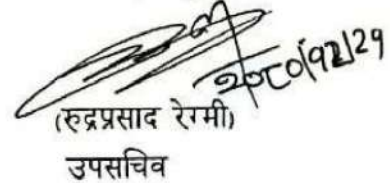 २०८०/१२/२१
(रुद्रप्रसाद रेग्मी)
उपसचिव